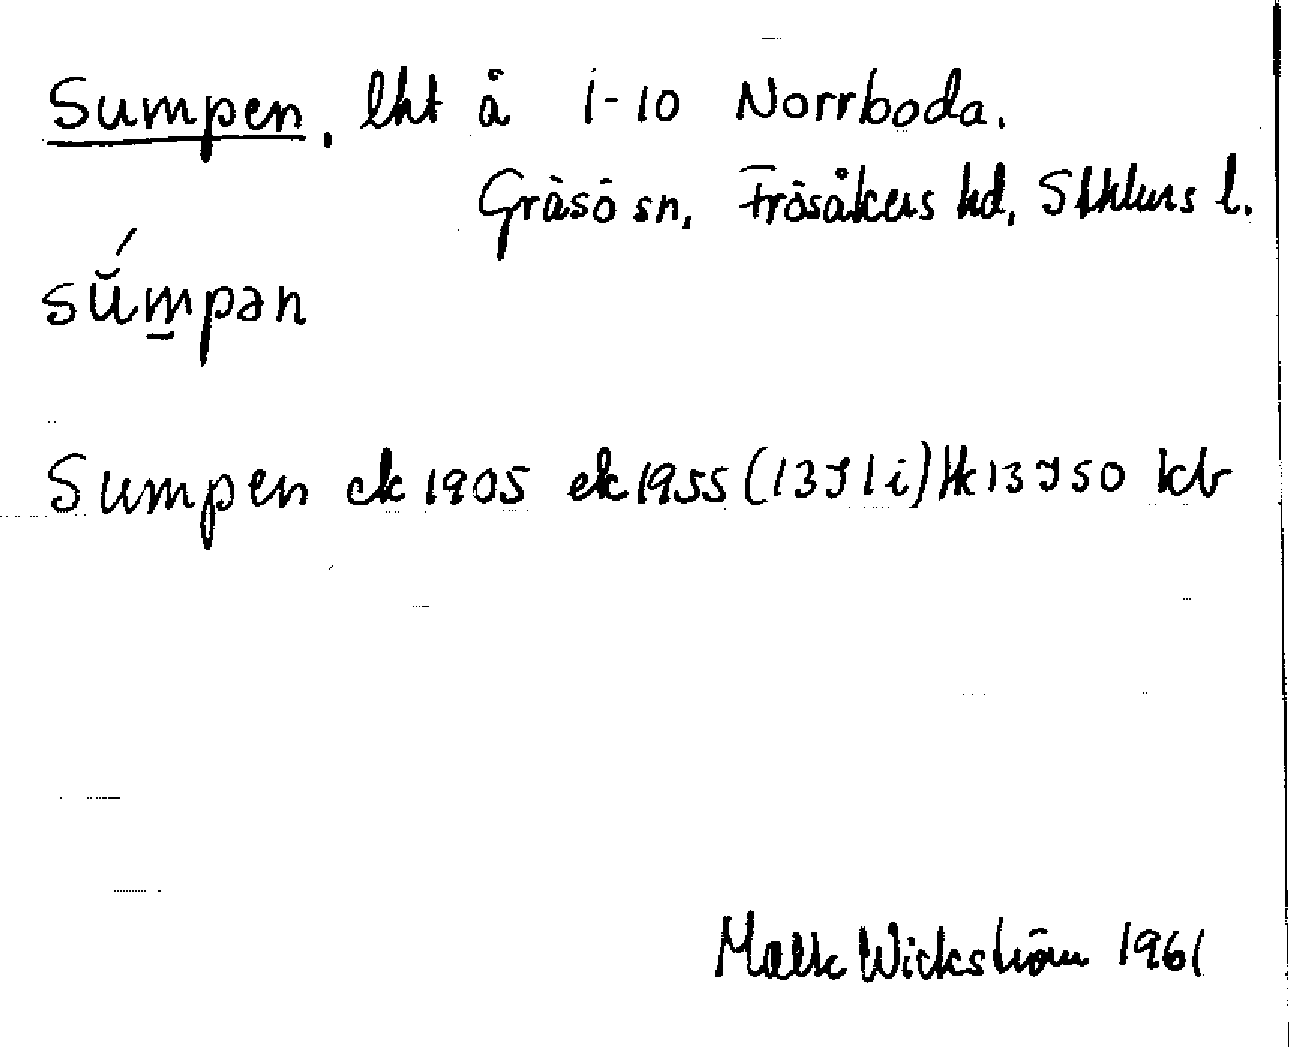 Sumpen, lht å 1-10 Norrboda.
Gräsö sn, Frösåkers hd, Sthlms l.
sŭ́m̲pən
Sumpen ek 1905 ek 1955 (13I1i) Hk 13I50 kb
Wickström 1961